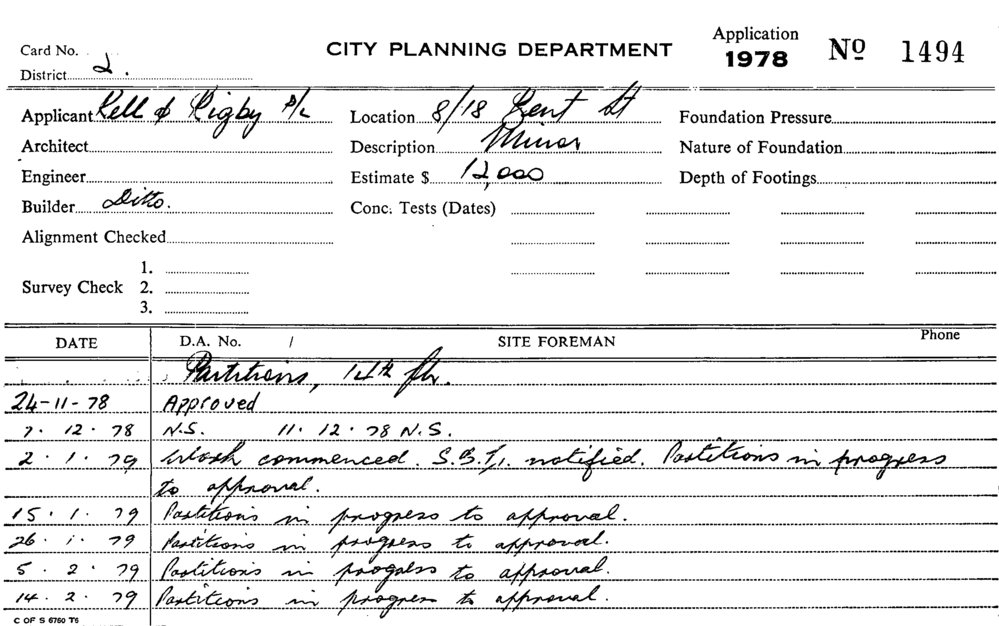 Card No.
CITY PLANNING DEPARTMENT
Application
1978 No 1494
District 2.
Applicant Kell & Rigby P/L Location 8/18 Kent St Foundation Pressure
Architect Description Minor Nature of Foundation
Engineer Estimate $ 12,000 Depth of Footings
Builder Ditto. Conc. Tests (Dates)
Alignment Checked
1.
Survey Check 2.
3.
DATE D.A. No. / SITE FOREMAN Phone
Partitions, 14th flr.
24-11-78 Approved
7. 12. 78 N.S. 11. 12. 78 N.S.
2. 1. 79 Work commenced. notified. Partitions in progress
to approval.
15. 1. 79 Partitions in progress to approval.
26. 1. 79 Partitions in progress to approval.
5. 2. 79 Partitions in progress to approval.
14. 2. 79 Partitions in progress to approval.
C OF S 6760 T5